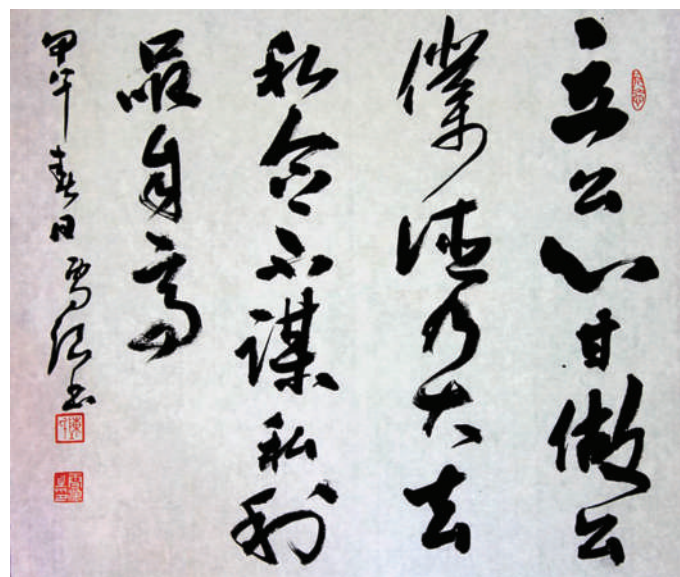 立公心甘做公
仆德乃大去
私念不谋私利
品自高
甲午春日雪后书